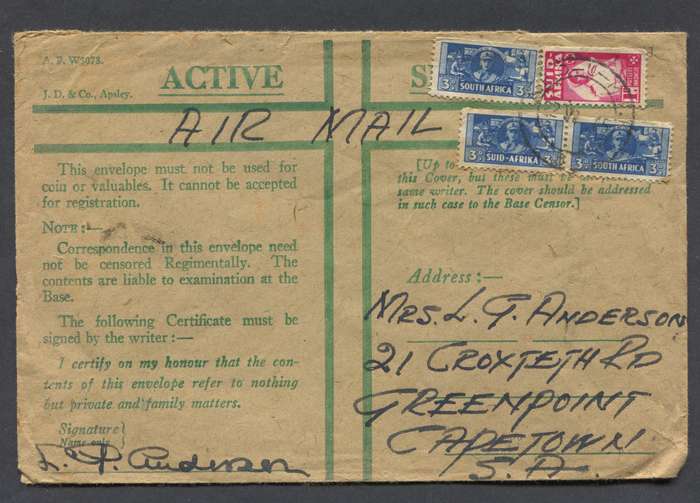 A. F. W3078.
J. D. & Co., Apsley.
ACTIVE
S
AIR MAIL
3D SOUTH AFRICA 3D
SUID-AFRIKA
3D SUID-AFRIKA 3D
3D SOUTH AFRICA 3D
This envelope must not be used for
coin or valuables. It cannot be accepted
for registration.
NOTE:—
Correspondence in this envelope need
not be censored Regimentally. The
contents are liable to examination at the
Base.
The following Certificate must be
signed by the writer:—
I certify on my honour that the con-
tents of this envelope refer to nothing
but private and family matters.
Signature
Name only
L. P. Anderson
[Up to
this Cover, but these must be
same writer. The cover should be addressed
in such case to the Base Censor.]
Address:—
MRS. L. G. ANDERSON
21 CROXTETH RD
GREENPOINT
CAPETOWN
S. A.